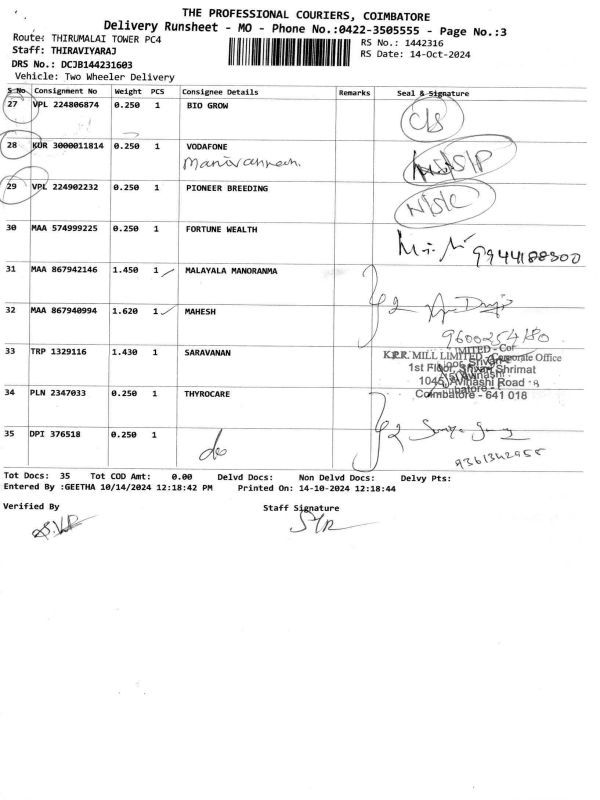 THE PROFESSIONAL COURIERS, COIMBATORE
Delivery Runsheet - MO - Phone No.:0422-3505555 - Page No.:3
Route: THIRUMALAI TOWER PC4
RS No.: 1442316
Staff: THIRAVIYARAJ
RS Date: 14-Oct-2024
DRS No.: DCJB144231603
Vehicle: Two Wheeler Delivery
S No Consignment No Weight PCS Consignee Details Remarks Seal & Signature
27 VPL 224806874 0.250 1 BIO GROW
C/S
28 KUR 3000011814 0.250 1 VODAFONE
29 VPL 224902232 0.250 1 PIONEER BREEDING
N/S/C
30 MAA 574999225 0.250 1 FORTUNE WEALTH
9944188300
31 MAA 867942146 1.450 1 MALAYALA MANORANMA
32 MAA 867940994 1.620 1 MAHESH
9600254180
33 TRP 1329116 1.430 1 SARAVANAN
K.P.R. MILL LIMITED - Corporate Office
1st Floor, Srivari Shrimat
1045, Avinashi Road
Coimbatore - 641 018
34 PLN 2347033 0.250 1 THYROCARE
35 DPI 376518 0.250 1
do
9361342955
Tot Docs: 35 Tot COD Amt: 0.00 Delvd Docs: Non Delvd Docs: Delvy Pts:
Entered By :GEETHA 10/14/2024 12:18:42 PM Printed On: 14-10-2024 12:18:44
Verified By Staff Signature